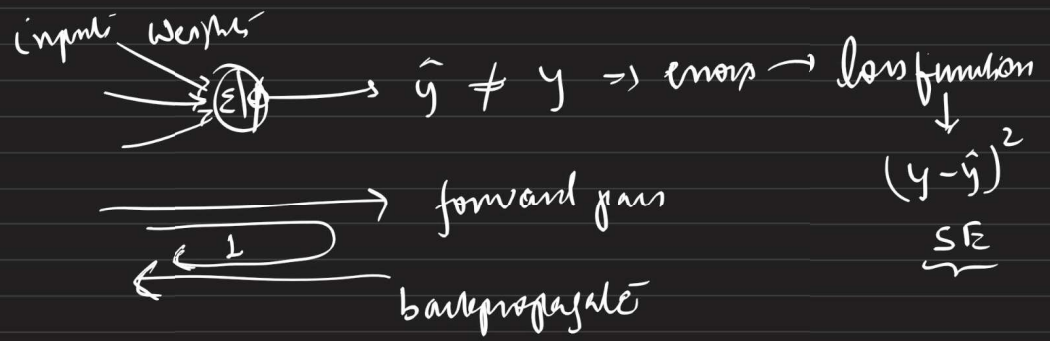 inputs weights
Σ|ϕ → ŷ ≠ y => error → loss function
↓
(y-ŷ)²
SE
forward pass
1
backpropagate